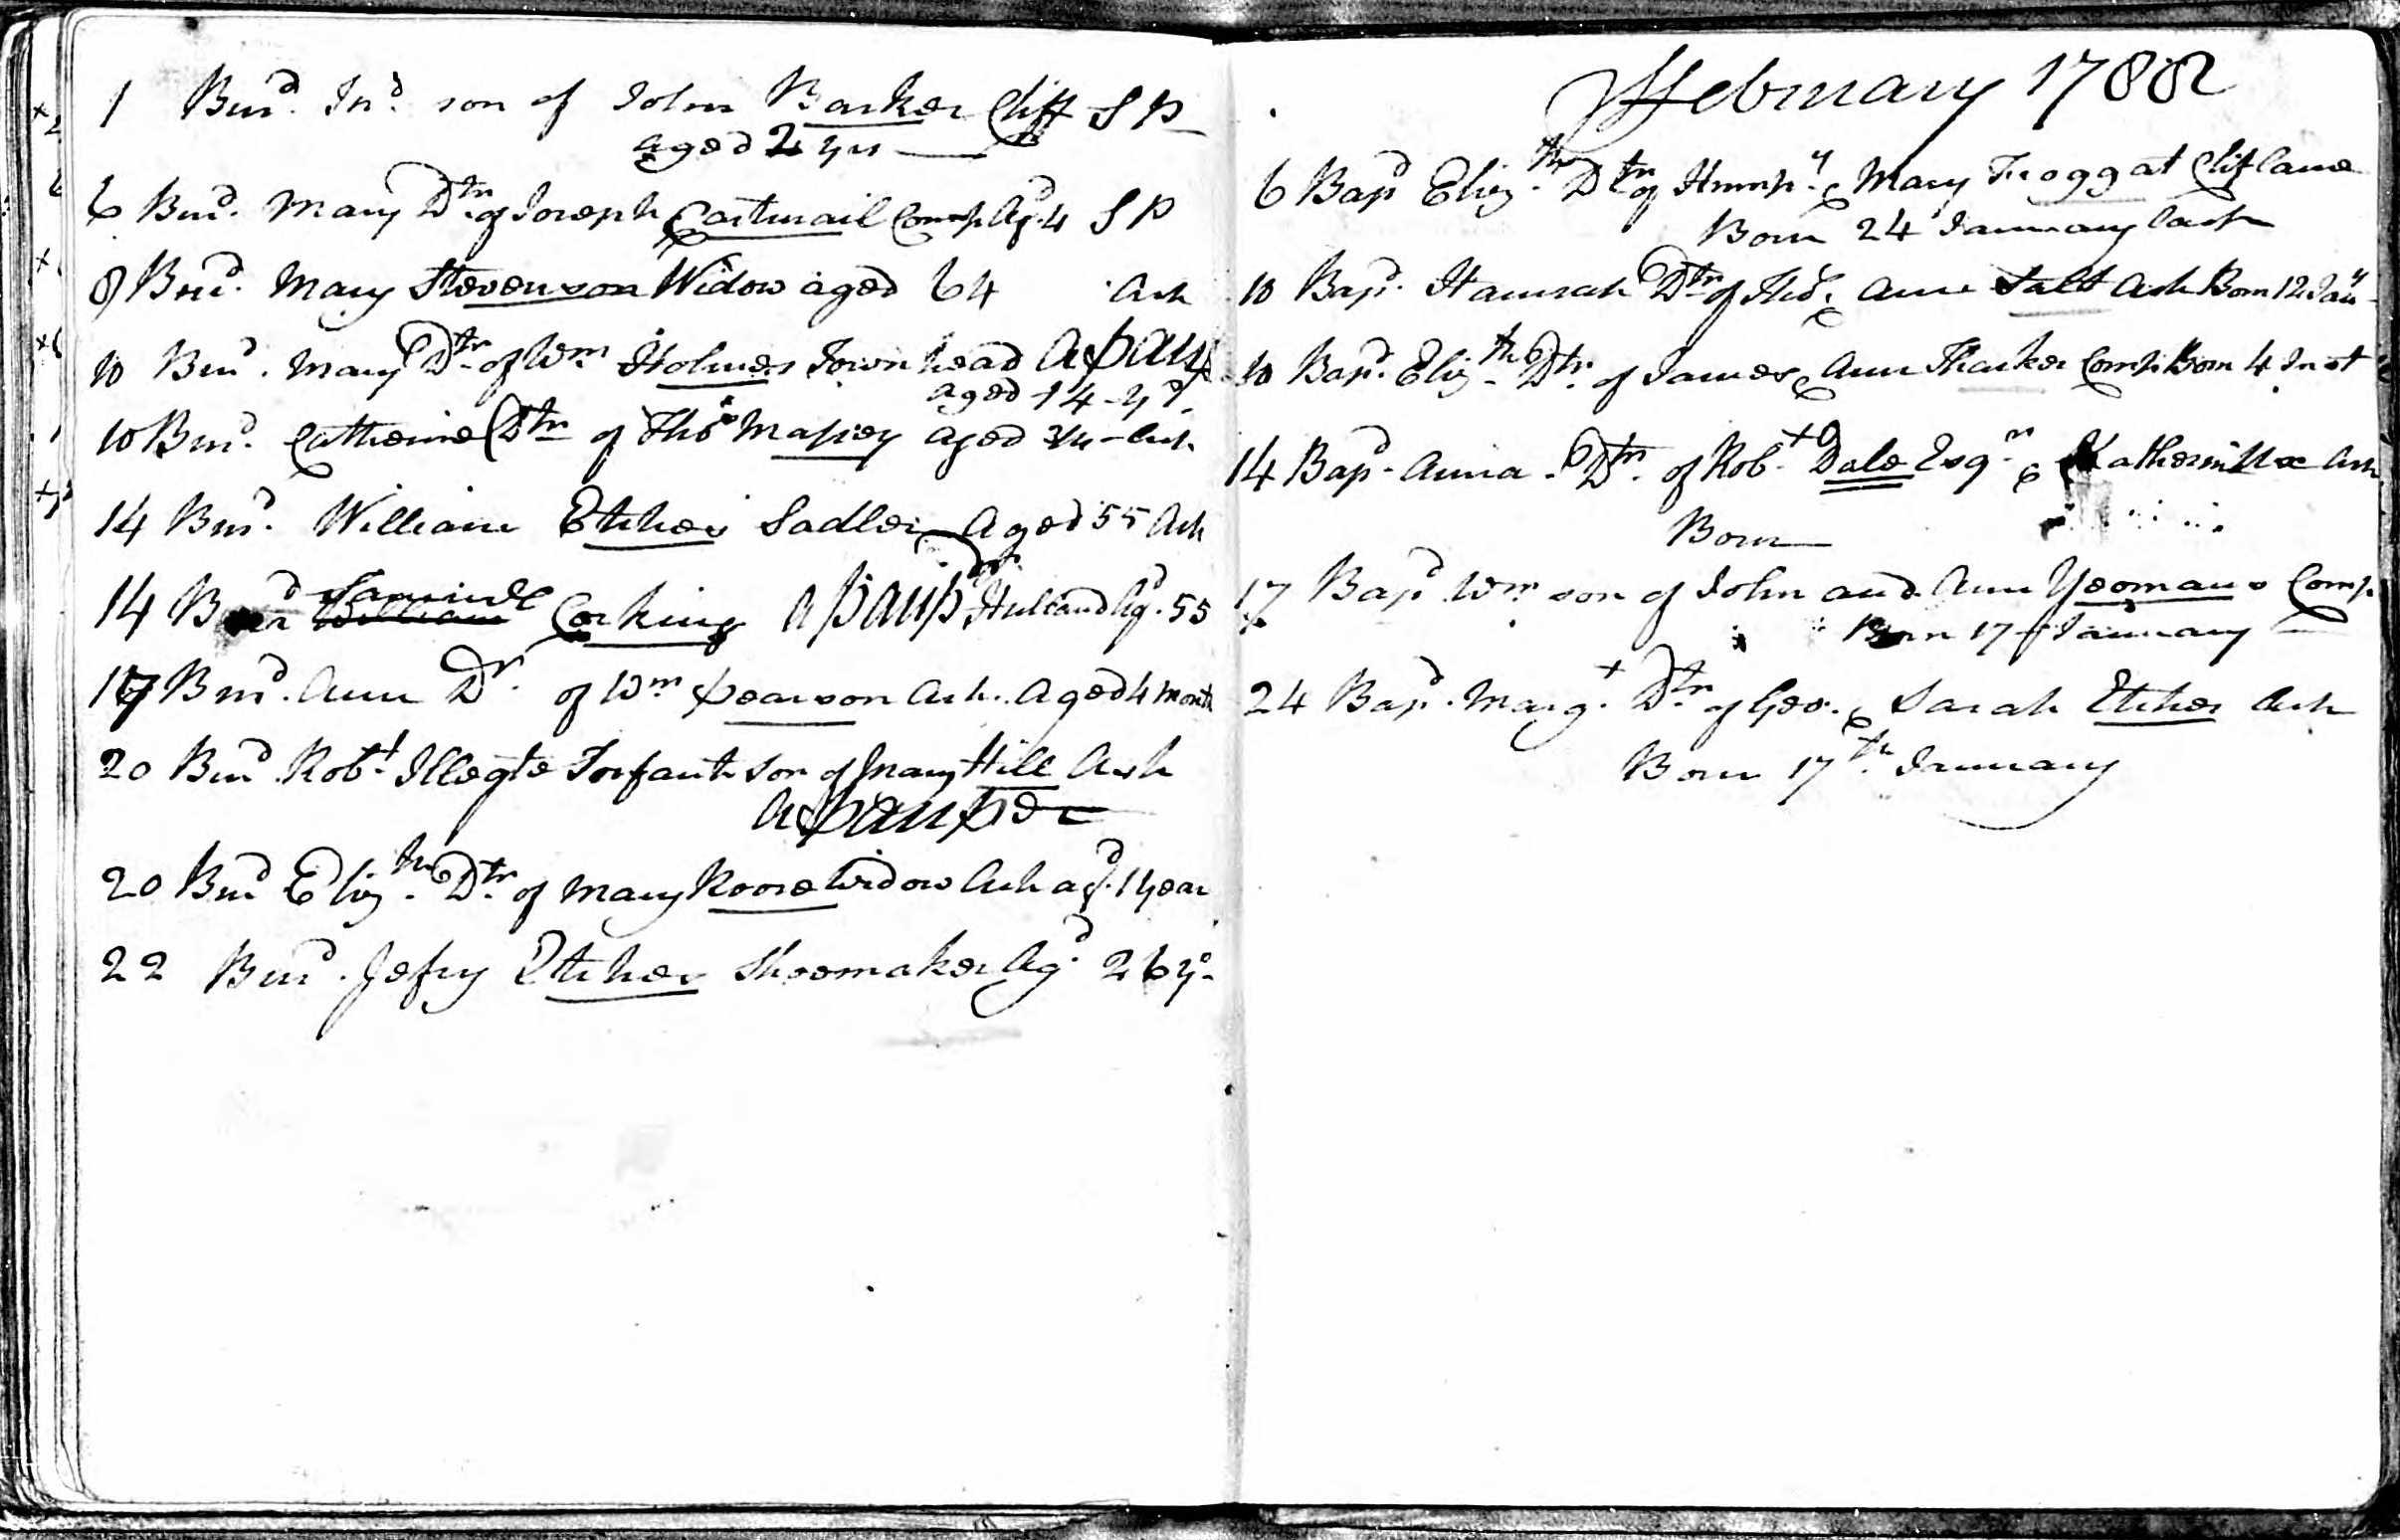 1 Burd. Jnd. son of John Barker Cliff S P
aged 2 yrs
6 Burd. Mary Dtr. of Joseph Cartmail Comp Agd. 4 S P
8 Burd. Mary Stevenson Widow aged 64 Ash
10 Burd. Mary Dtr of Wm Holmes Town head A paup
aged 14 yrs
10 Burd. Catherine Dtr of Thos Massey aged 3/4 - Ash
14 Burd. William Etches Sadler Aged 55 Ash
14 Burd Samuel Corking A paupr Hulland Agd. 55
17 Burd. Ann Dr. of Wm pearson Ash. Aged 4 month
20 Burd Robt Illegte Infant son of Mary Hill Ash
A pauper
20 Burd Elizth Dtr. of Mary Roose Widow Ash agd. 1 year
22 Burd. Jefry Etches Shoemaker Agd 26 ys
February 1788
6 Bapd Elizth. Dtr of Humpy & Mary Froggat Clif lane
Born 24 January last
10 Bapd. Hannah Dtr of Thos & Ann Salt Ash Born 12 Jany
10 Bapd. Elizth Dtr. of James & Ann Tharker Comp. Born 4 Inst
14 Bapd. Anna Dtr. of Robt Dale Esqr & Ash
Born
17 Bapd Wm son of John and Ann Yeomans Comp
Born 17 January
24 Bapd. Margt Dtr of Geo. & Sarah Etches Ash
Born 17th. January